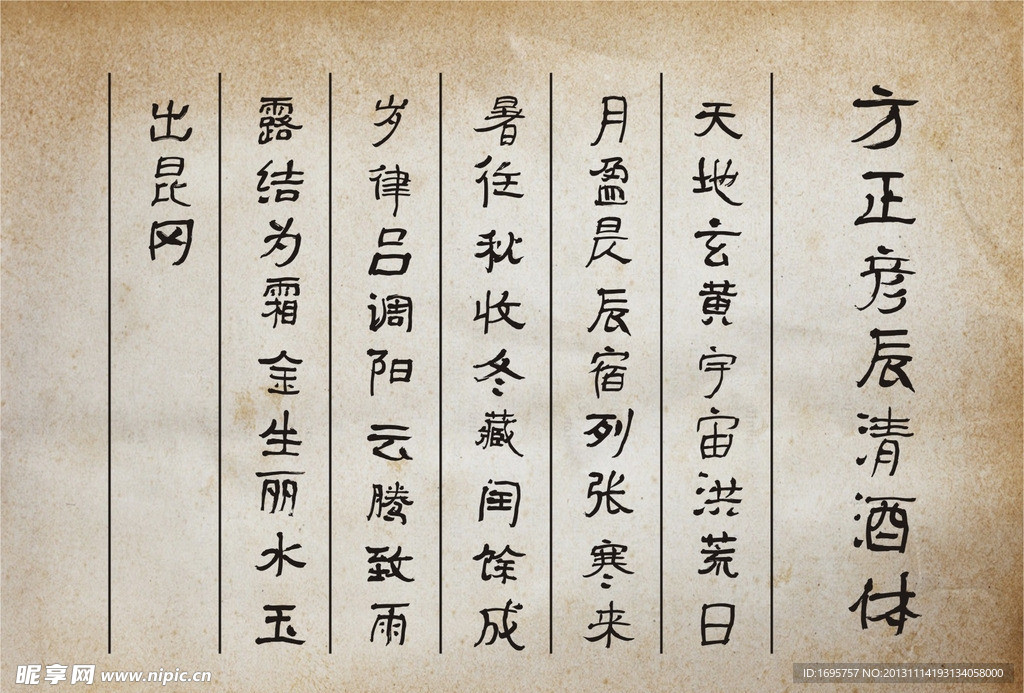 方正彦辰清酒体
天地玄黄宇宙洪荒日
月盈昃辰宿列张寒来
暑往秋收冬藏闰馀成
岁律吕调阳云腾致雨
露结为霜金生丽水玉
出昆网
昵享网 www.nipic.cn
ID:1695757 NO:20131114193134058000